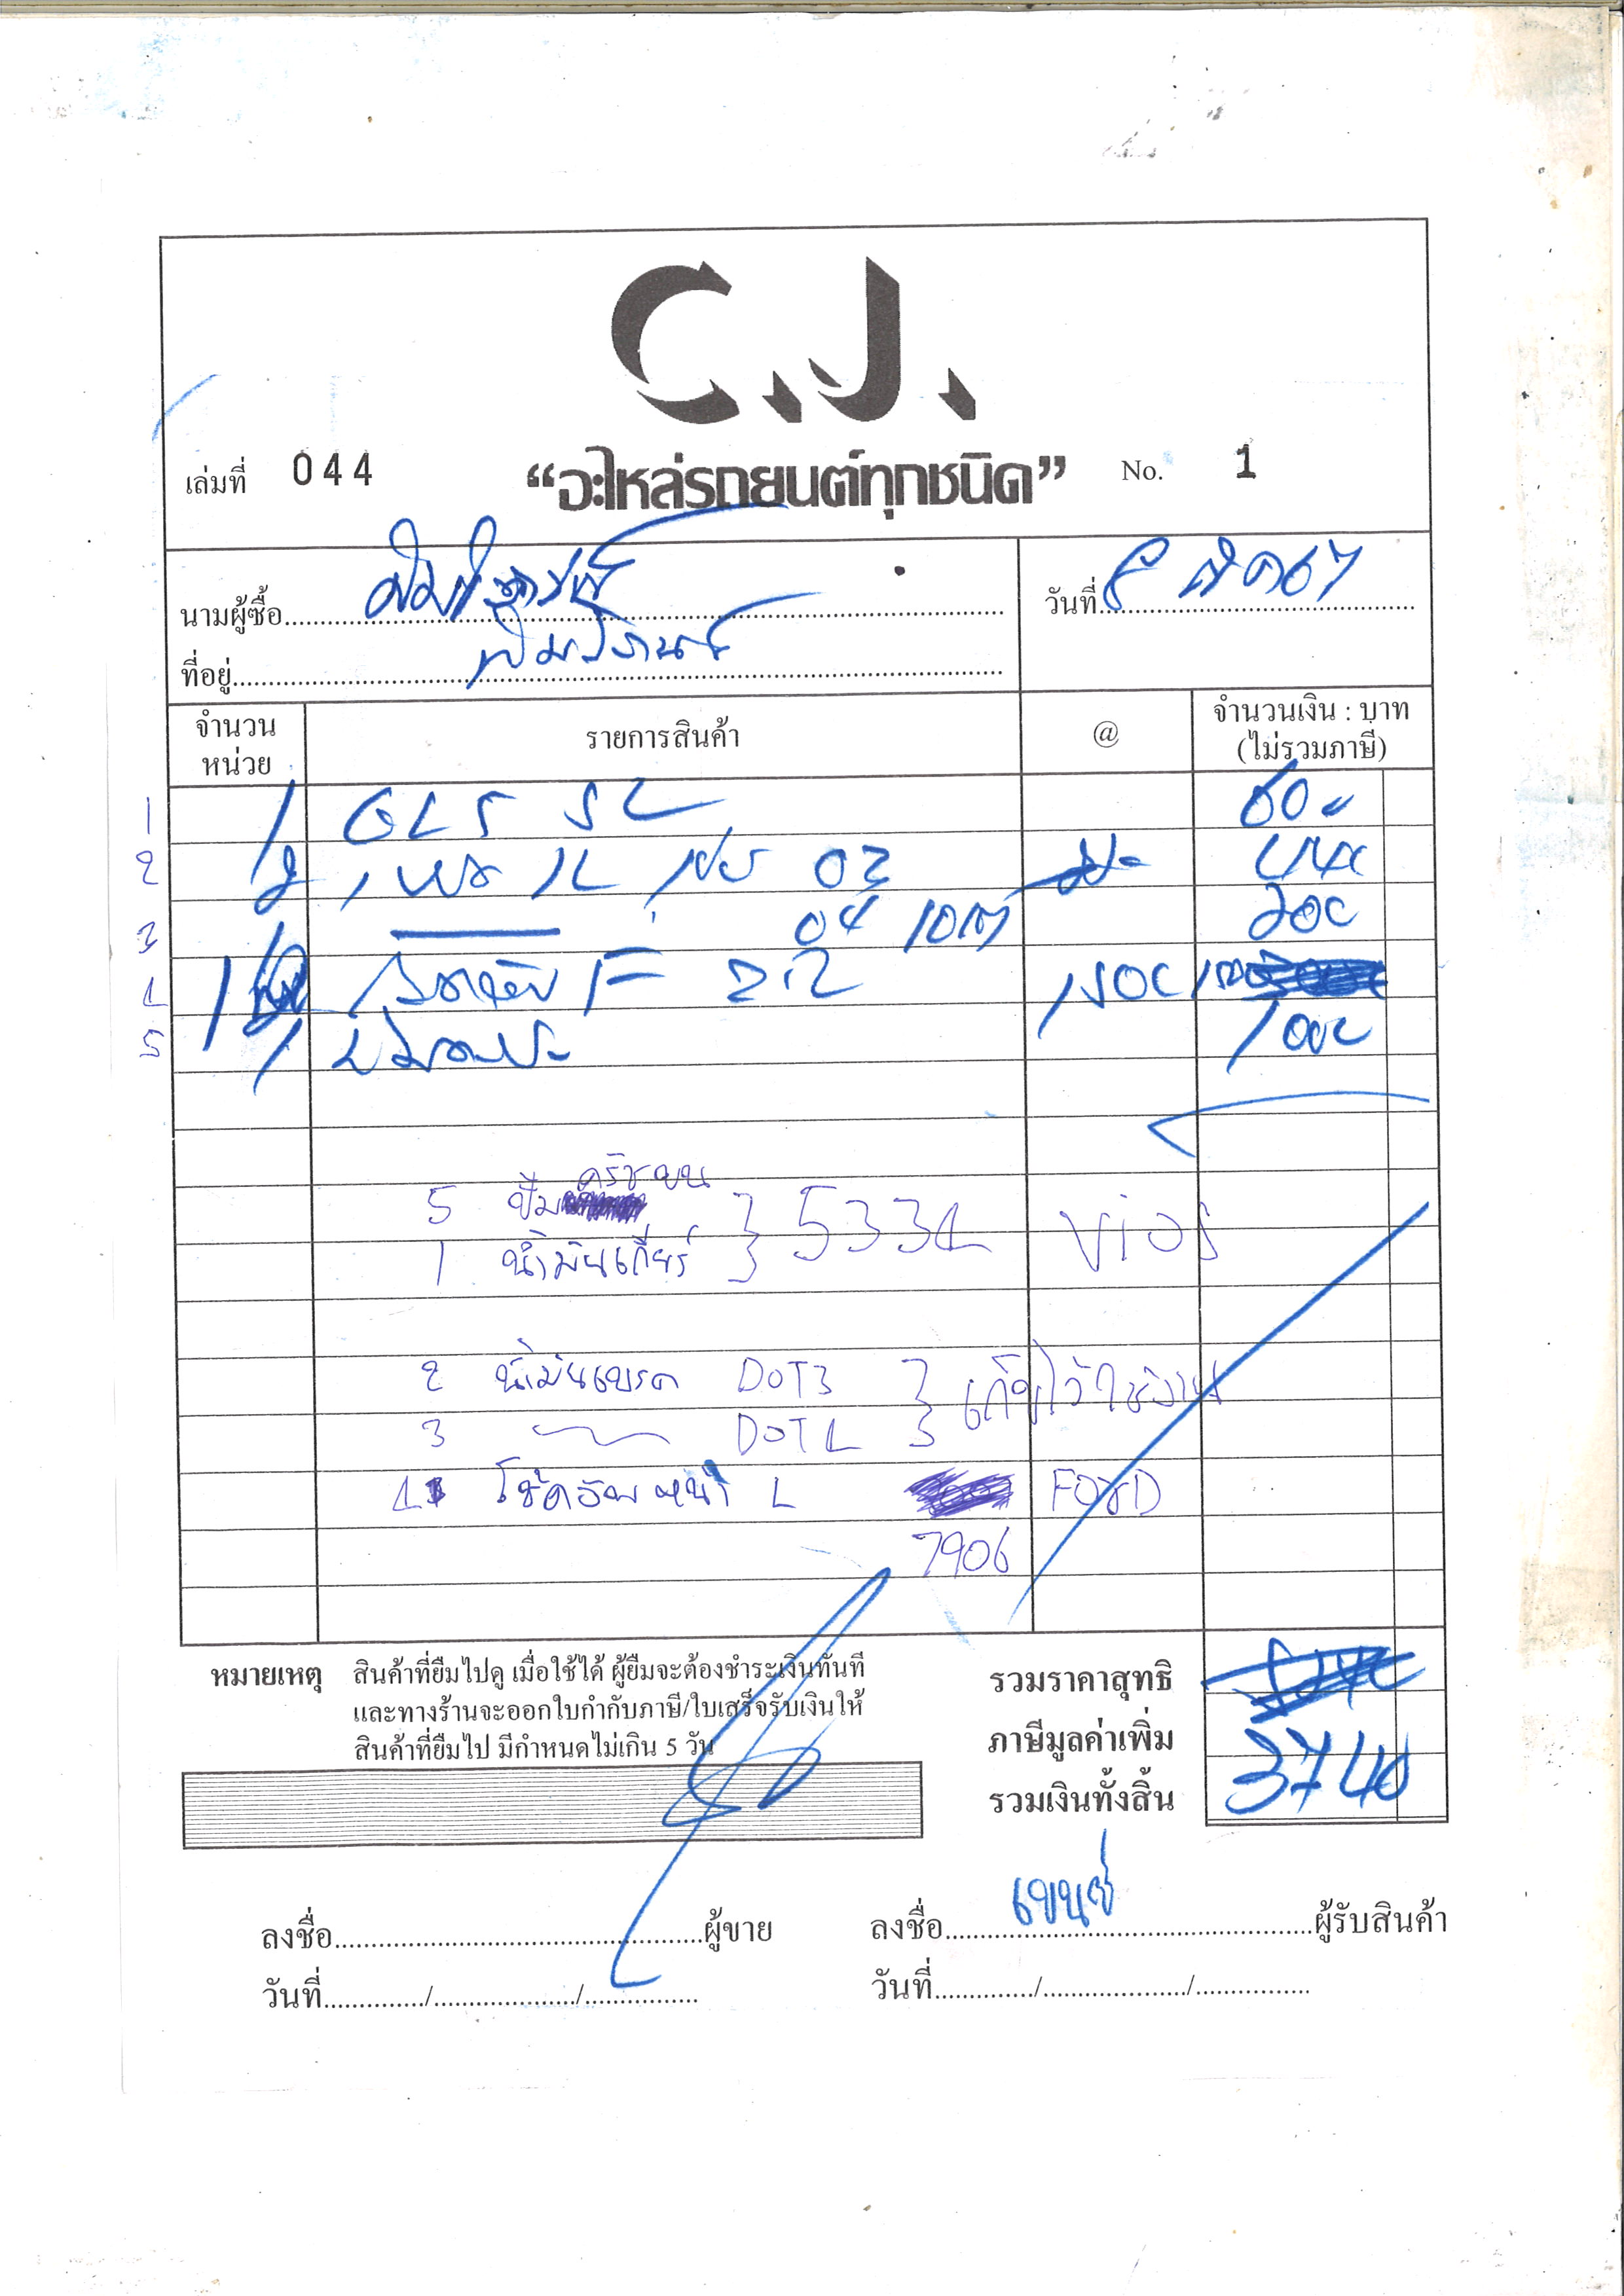 C.J.
เล่มที่ 044 “อะไหล่รถยนต์ทุกชนิด” No. 1
นามผู้ซื้อ
วันที่ 8 67
ที่อยู่
จำนวนหน่วย รายการสินค้า @ จำนวนเงิน : บาท (ไม่รวมภาษี)
1 1 GL5 5L 600
2 2 1L 03 440
3 04 200
4 1 F 2.2 1500 1500
5 1 1000
5 ปั๊มครัชบน } 5334 Vios
1 น้ำมันเกียร์
2 น้ำมันเบรค DOT3 } เก็บไว้ใช้งาน
3 DOT4
4 โช๊คอัพหน้า L FORD
7906
หมายเหตุ สินค้าที่ยืมไปดู เมื่อใช้ได้ ผู้ยืมจะต้องชำระเงินทันที
และทางร้านจะออกใบกำกับภาษี/ใบเสร็จรับเงินให้
สินค้าที่ยืมไป มีกำหนดไม่เกิน 5 วัน
รวมราคาสุทธิ
ภาษีมูลค่าเพิ่ม
รวมเงินทั้งสิ้น 3740
ลงชื่อ ผู้ขาย
ลงชื่อ ผู้รับสินค้า
วันที่ / /
วันที่ / /